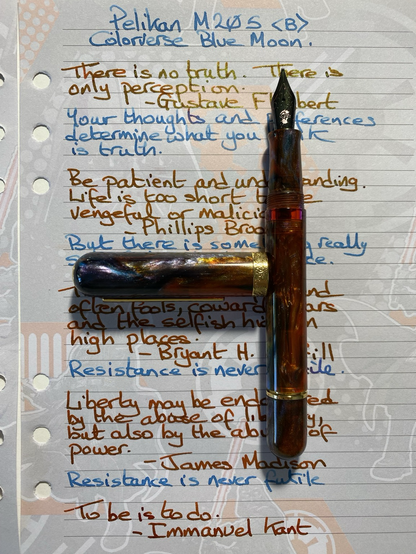 Pelikan M205 <B>
Colorverse Blue Moon.
There is no truth. There is
only perception.
- Gustave F bert
Your thoughts and ferences
determine what you k
is truth.
Be patient and und anding.
Life is too short e
vengeful or malicio
- Phillips Broo
But there is some really
s de.
nd
often fools, coward ars
and the selfish hi n
high places.
- Bryant H. ill
Resistance is never tile.
Liberty may be endan red
by the abuse of lib y,
but also by the abu of
power.
- James Madison
Resistance is never futile
To be is to do.
- Immanuel Kant